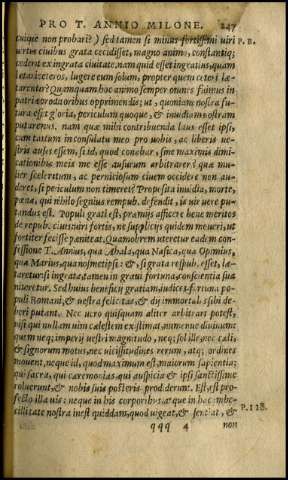 PRO T. ANNIO MILONE. 247
cuique non probari?) sed tamen si minus fortissimi uiri P. B.
uirtus ciuibus grata cecidisset, magno animo, constantiq;
cederet ex ingrata ciuitate. nam quid esset ingratius, quam
lætari ceteros, lugere eum solum, propter quem ceteri læ-
tarentur? Quamquam hoc animo semper omnes fuimus in
patriæ proditoribus opprimendis; ut, quoniam nostra fu-
tura esset gloria, periculum quoque, & inuidiam nostram
putaremus. nam quæ mihi tribuenda laus esset ipsi,
cum tantum in consulatu meo pro uobis, ac liberis ue-
stris ausus essem, si id, quod conabar, sine maximis dimi-
cationibus meis me esse ausurum arbitrarer? quæ mu-
lier sceleratum, ac perniciosum ciuem occidere non au-
deret, si periculum non timeret? Proposita inuidia, morte,
pœna, qui nihilo segnius rempub. defendit, is uir uere pu-
tandus est. Populi grati est, præmijs afficere bene meritos
de repub. ciues: uiri fortis, ne supplicijs quidem moueri, ut
fortiter fecisse pæniteat. Quamobrem uteretur eadem con-
fessione T. Annius, qua Ahala, qua Nasica, qua Opimius,
qua Marius, qua nosmetipsi: &, si grata respub. esset, læ-
taretur: si ingrata, tamen in graui fortuna, conscientia sua
niteretur. Sed huius beneficij gratiam, iudices, fortuna po-
puli Romani, & uestra felicitas, & dij immortales sibi de-
beri putant. Nec uero quisquam aliter arbitrari potest,
nisi qui nullam uim cælestem existimat, numenue diuinum:
quem neq; imperij uestri magnitudo, neq; sol ille, nec cæli,
& signorum motus, nec uicissitudines rerum, atq; ordines
mouent, neque id, quod maximum est, maiorum sapientia;
qui sacra, qui cæremonias, qui auspicia & ipsi sanctissime
coluerunt, & nobis suis posteris prodiderunt. Est, est pro-
fecto illa uis: neque in his corporibus, atque in hac imbe-
cillitate nostra inest quiddam, quod uigeat, & sentiat, & P. 118.
qqq 4 non